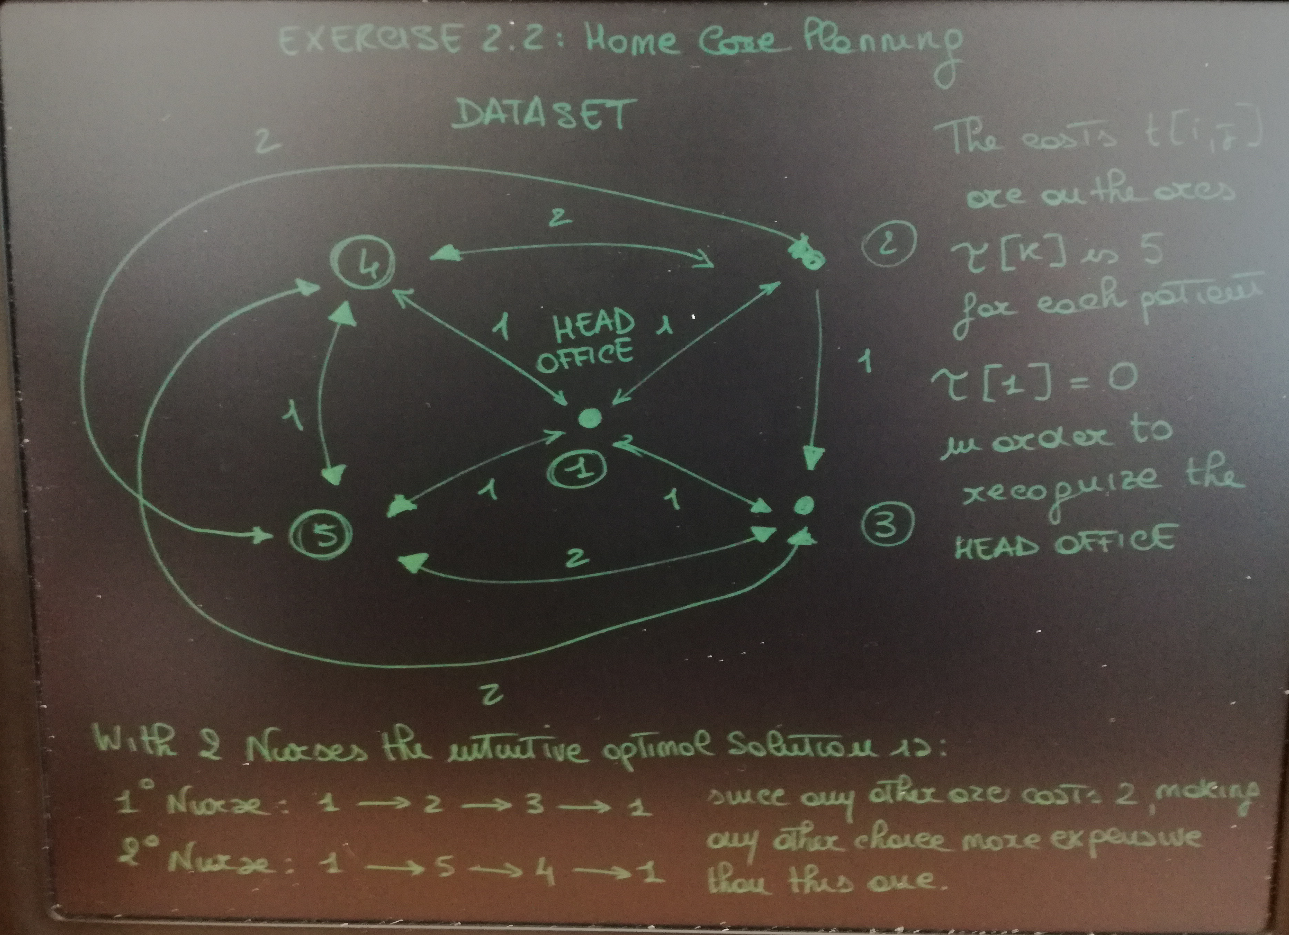 EXERCISE 2.2: Home Care Planning
DATASET
The costs t[i,j]
are on the arcs
τ[k] is 5
for each patient
τ[1] = 0
in order to
recognize the
HEAD OFFICE
2
2
4
2
1
HEAD
OFFICE
1
1
1
1
1
1
5
3
2
2
With 2 Nurses the intuitive optimal Solution is:
1° Nurse: 1 → 2 → 3 → 1
2° Nurse: 1 → 5 → 4 → 1
since any other arc costs 2, making
any other choice more expensive
than this one.